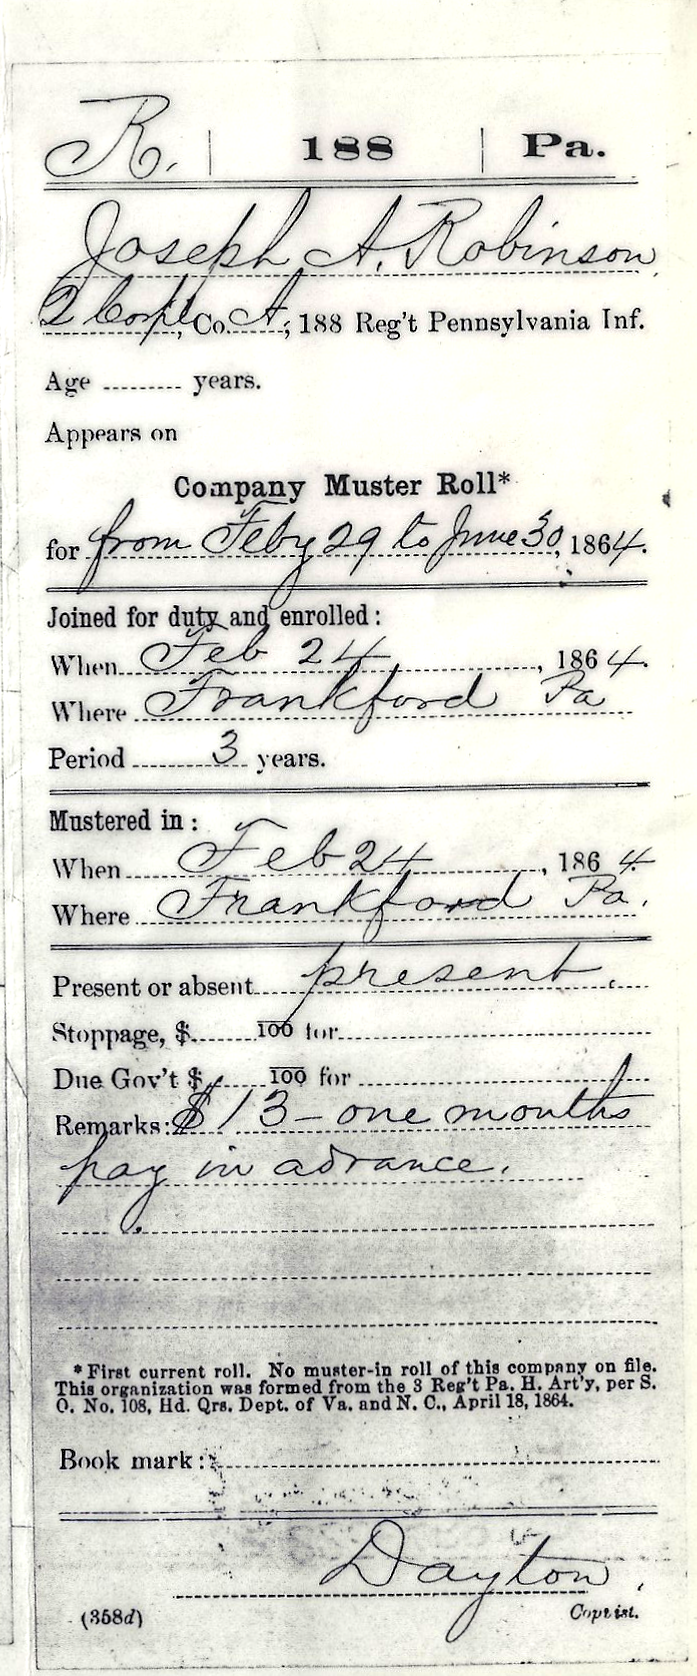 R. | 188 | Pa.
Joseph A. Robinson
2 Corpl, Co. A, 188 Reg't Pennsylvania Inf.
Age ......... years.
Appears on
Company Muster Roll*
for from Feby 29 to June 30, 1864.
Joined for duty and enrolled:
When Feb 24, 1864.
Where Frankford Pa
Period 3 years.
Mustered in:
When Feb 24, 1864
Where Frankford Pa.
Present or absent present.
Stoppage, $ 100 for
Due Gov't $ 100 for
Remarks: $13 – one months
pay in advance.
*First current roll. No muster-in roll of this company on file.
This organization was formed from the 3 Reg't Pa. H. Art'y, per S.
O. No. 108, Hd. Qrs. Dept. of Va. and N. C., April 18, 1864.
Book mark:
Dayton.
(358d) Copyist.